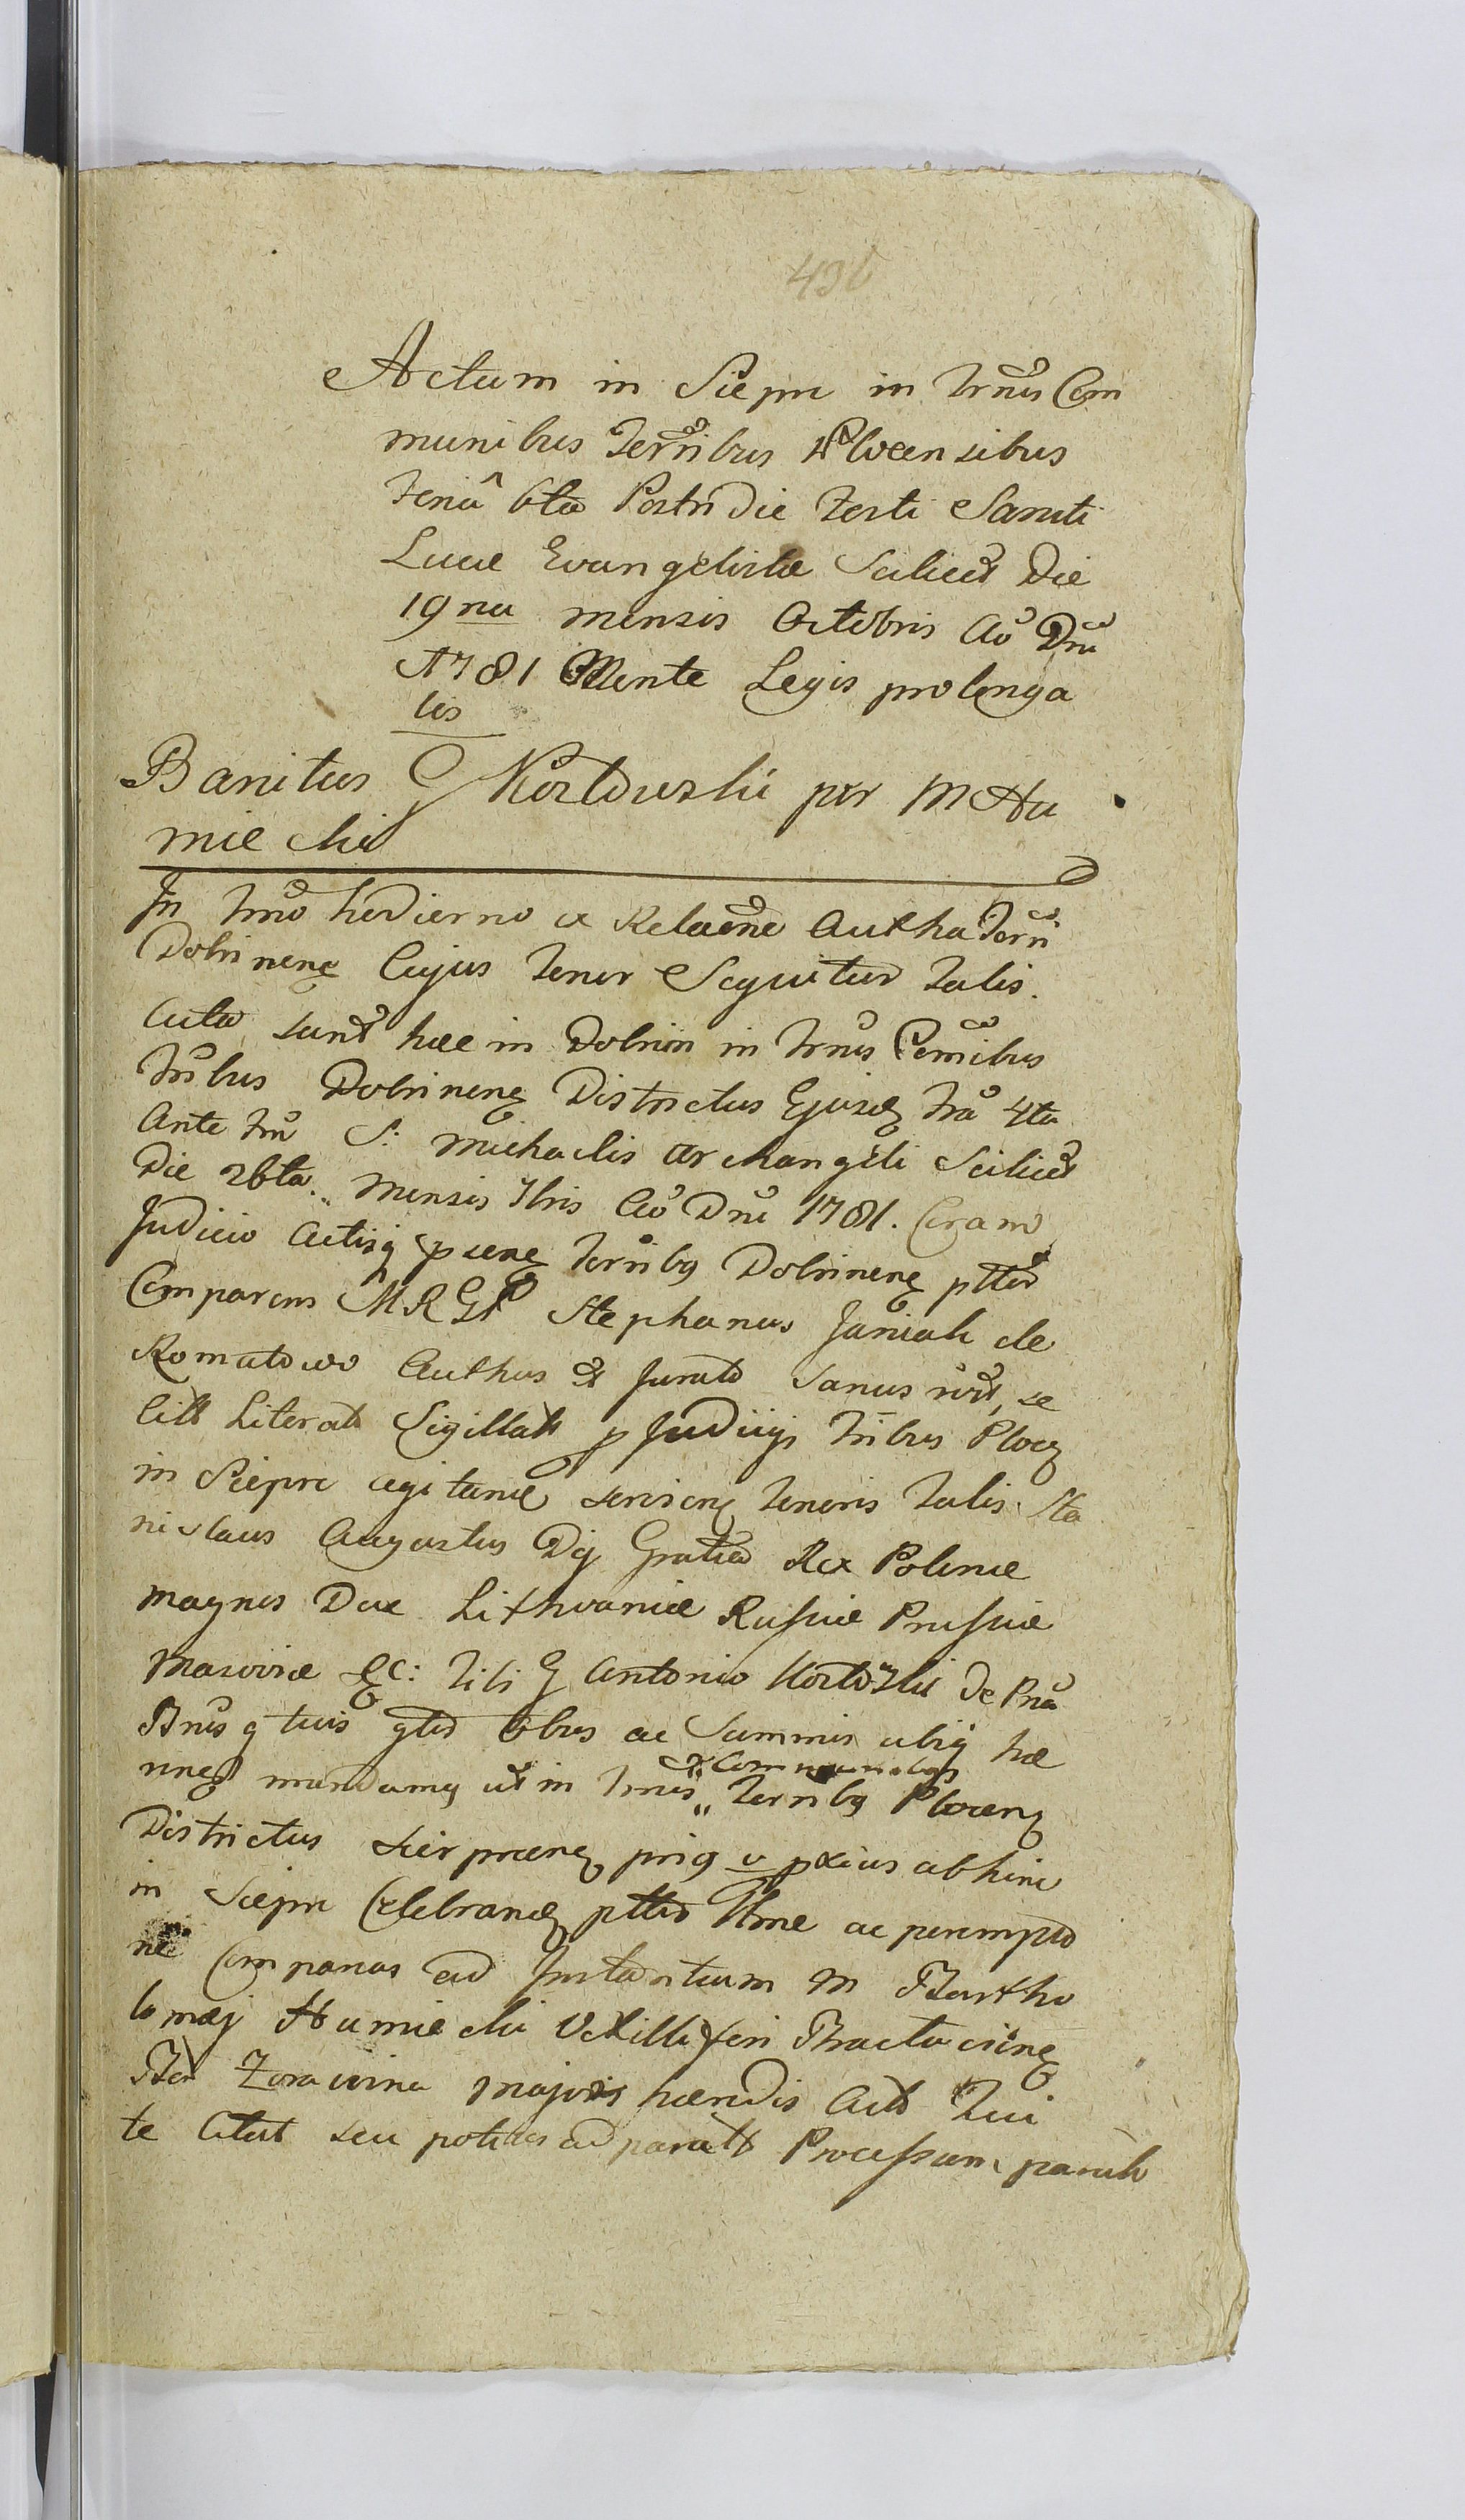 496
Actum in Siepre in Trnis Com
munibus Terribus Plocensibus
Feria 6ta Postridie Festi Sancti
Lucae Evangelistae Scilicet Die
19na mensis Octobris Ao Dni
1781 Mente Legis prolonga
tis
Banitus G Kozłowski per M Hu
miecki
In Trno hodierno ex Relaone Authca Terri
Dobrinen Cujus Tenor Sequitur Talis.
Acta sunt haec in Dobrin in Trnis Comibus
Tribus Dobrinen Districtus Ejusd Fra 4ta
Ante Fm S: Michaelis Archangeli Scilicet
Die 26ta mensis 7bris Ao Dni 1781. Coram
Judicio Actisq psen Terribg Dobrinen pttr
Comparens MRGP Stephanus Janiak de
Romatowo Authus et Jurats Sanus mt, se
Litt Literat Sigillatt p Judiijs Tribus Ploc
in Siepre agitand Tenoris Talis. Sta
nislaus Augustus Dej Gratia Rex Poloniae
Magnus Dux Lithvaniae Russiae Prussiae
Masoviae &c: Tibi G Antonio Kozłowski De Pna
Bnis q tuis gltr obus ac Summis ubiq hae
mandamg ut in Trnis Communibus Terribg Plocen
Districtus Sierpcen prig v pxius abhinc
in Siepre Celebrand pttr ac perempto
rie Compareas ad Instantiam M Bartho
lomaej Humiecki Vexilliferi
Bon Zorawina Majoris haeredis Act Qui
te Citat seu potius ad paratt Processum paratt